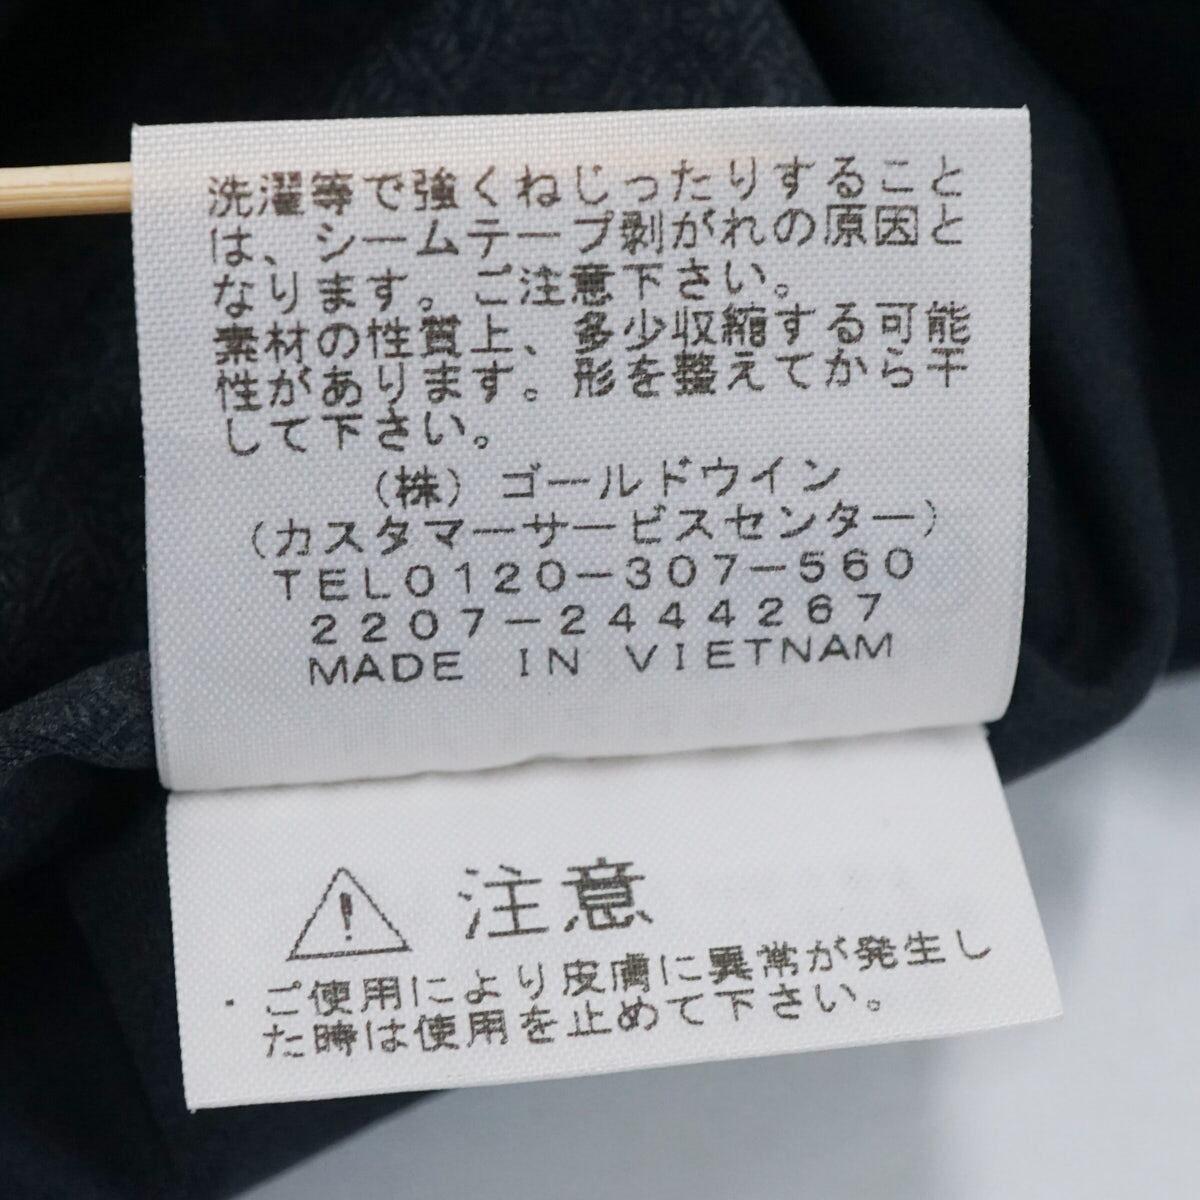 洗濯等で強くねじったりすること
は、シームテープ剥がれの原因と
なります。ご注意下さい。
素材の性質上、多少収縮する可能
性があります。形を整えてから干
して下さい。
（株）ゴールドウイン
（カスタマーサービスセンター）
TEL0120-307-560
2207-2444267
MADE IN VIETNAM
注意
・ご使用により皮膚に異常が発生し
た時は使用を止めて下さい。